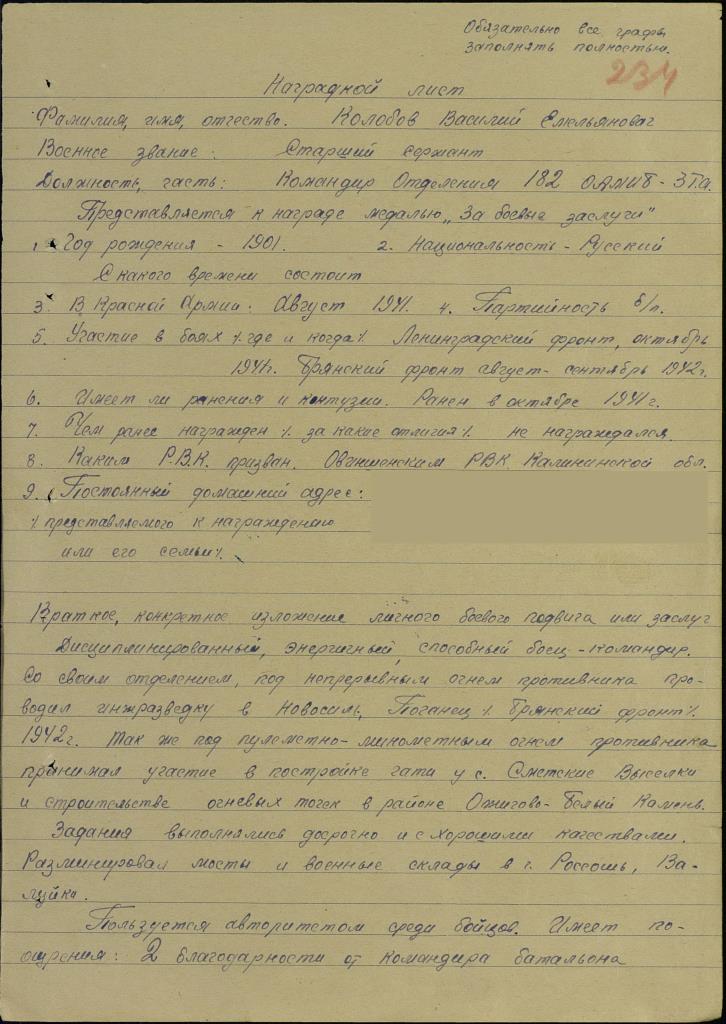 Обязательно все графы
заполнять полностью.
234
Наградной лист
Фамилия, имя, отчество. Колобов Василий Емельянович
Военное звание: Старший сержант
Должность, часть: Командир Отделения 182 ОАМИБ - 3 Т.а.
Представляется к награде медалью „За боевые заслуги"
1. Год рождения - 1901. 2. Национальность - Русский
С какого времени состоит
3. В Красной Армии: Август 1941. 4. Партийность б/п.
5. Участие в боях % где и когда % Ленинградский фронт, октябрь
1941г. Брянский фронт август - сентябрь 1942г.
6. Имеет ли ранения и контузии. Ранен в октябре 1941г.
7. Чем ранее награжден % за какие отличия % не награждался.
8. Каким Р.В.К. призван. Овинищенским РВК Калининской обл.
9. Постоянный домашний адрес:
% представляемого к награждению
или его семьи %.
Краткое, конкретное изложение личного боевого подвига или заслуг
Дисциплинированный, энергичный, способный боец - командир.
Со своим отделением, под непрерывным огнем противника про-
водил инжразведку в Новосиль, Поганец % Брянский фронт %
1942г. Так же под пулеметно-минометным огнем противника
принимал участие в постройке гати у с. Сметские Выселки
и строительстве огневых точек в районе Ожигово - Белый Камень.
Задания выполнялись досрочно и с хорошими качествами.
Разминировал мосты и военные склады в г. Россошь, Ва-
луйки.
Пользуется авторитетом среди бойцов. Имеет по-
ощрения: 2 благодарности от командира батальона